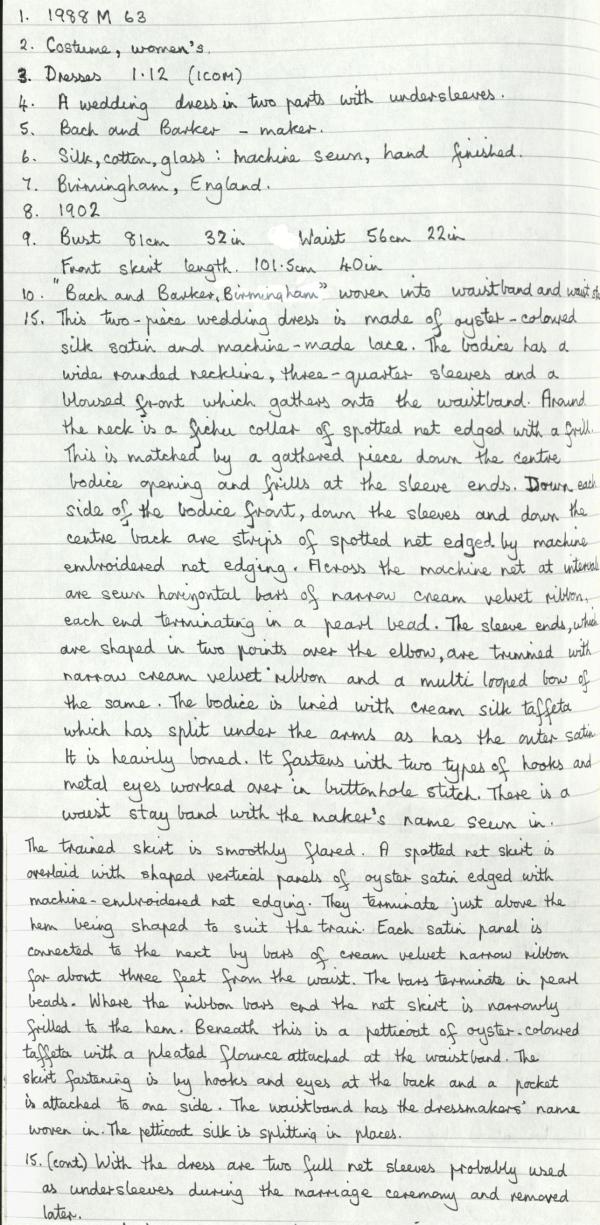 1. 1988 M 63
2. Costume, women's.
3. Dresses 1.12 (ICOM)
4. A wedding dress in two parts with undersleeves.
5. Bach and Barker - maker.
6. Silk, cotton, glass : machine sewn, hand finished.
7. Birmingham, England.
8. 1902
9. Bust 81cm 32in Waist 56cm 22in
Front skirt length. 101.5cm 40in
10. "Bach and Barker, Birmingham" woven into waistband and waist
15. This two-piece wedding dress is made of oyster-coloured
silk satin and machine-made lace. The bodice has a
wide rounded neckline, three-quarter sleeves and a
bloused front which gathers onto the waistband. Around
the neck is a fichu collar of spotted net edged with a frill.
This is matched by a gathered piece down the centre
bodice opening and frills at the sleeve ends. Down each
side of the bodice front, down the sleeves and down the
centre back are strips of spotted net edged by machine
embroidered net edging. Across the machine net at intervals
are sewn horizontal bars of narrow cream velvet ribbon,
each end terminating in a pearl bead. The sleeve ends, which
are shaped in two points over the elbow, are trimmed with
narrow cream velvet ribbon and a multi looped bow of
the same. The bodice is lined with cream silk taffeta
which has split under the arms as has the outer satin.
It is heavily boned. It fastens with two types of hooks and
metal eyes worked over in buttonhole stitch. There is a
waist stay band with the maker's name sewn in.
The trained skirt is smoothly flared. A spotted net skirt is
overlaid with shaped vertical panels of oyster satin edged with
machine-embroidered net edging. They terminate just above the
hem being shaped to suit the train. Each satin panel is
connected to the next by bars of cream velvet narrow ribbon
for about three feet from the waist. The bars terminate in pearl
beads. Where the ribbon bars end the net skirt is narrowly
frilled to the hem. Beneath this is a petticoat of oyster-coloured
taffeta with a pleated flounce attached at the waistband. The
skirt fastening is by hooks and eyes at the back and a pocket
is attached to one side. The waistband has the dressmakers' name
woven in. The petticoat silk is splitting in places.
15. (cont) With the dress are two full net sleeves probably used
as undersleeves during the marriage ceremony and removed
later.